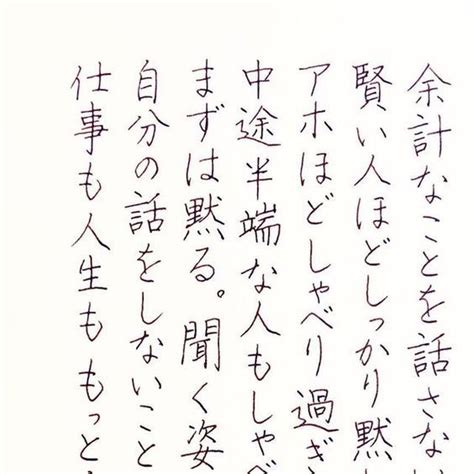 余計なことを話さな
賢い人ほどしっかり黙
アホほどしゃべり過ぎ
中途半端な人もしゃべ
まずは黙る。聞く姿
自分の話をしないこと
仕事も人生ももっと